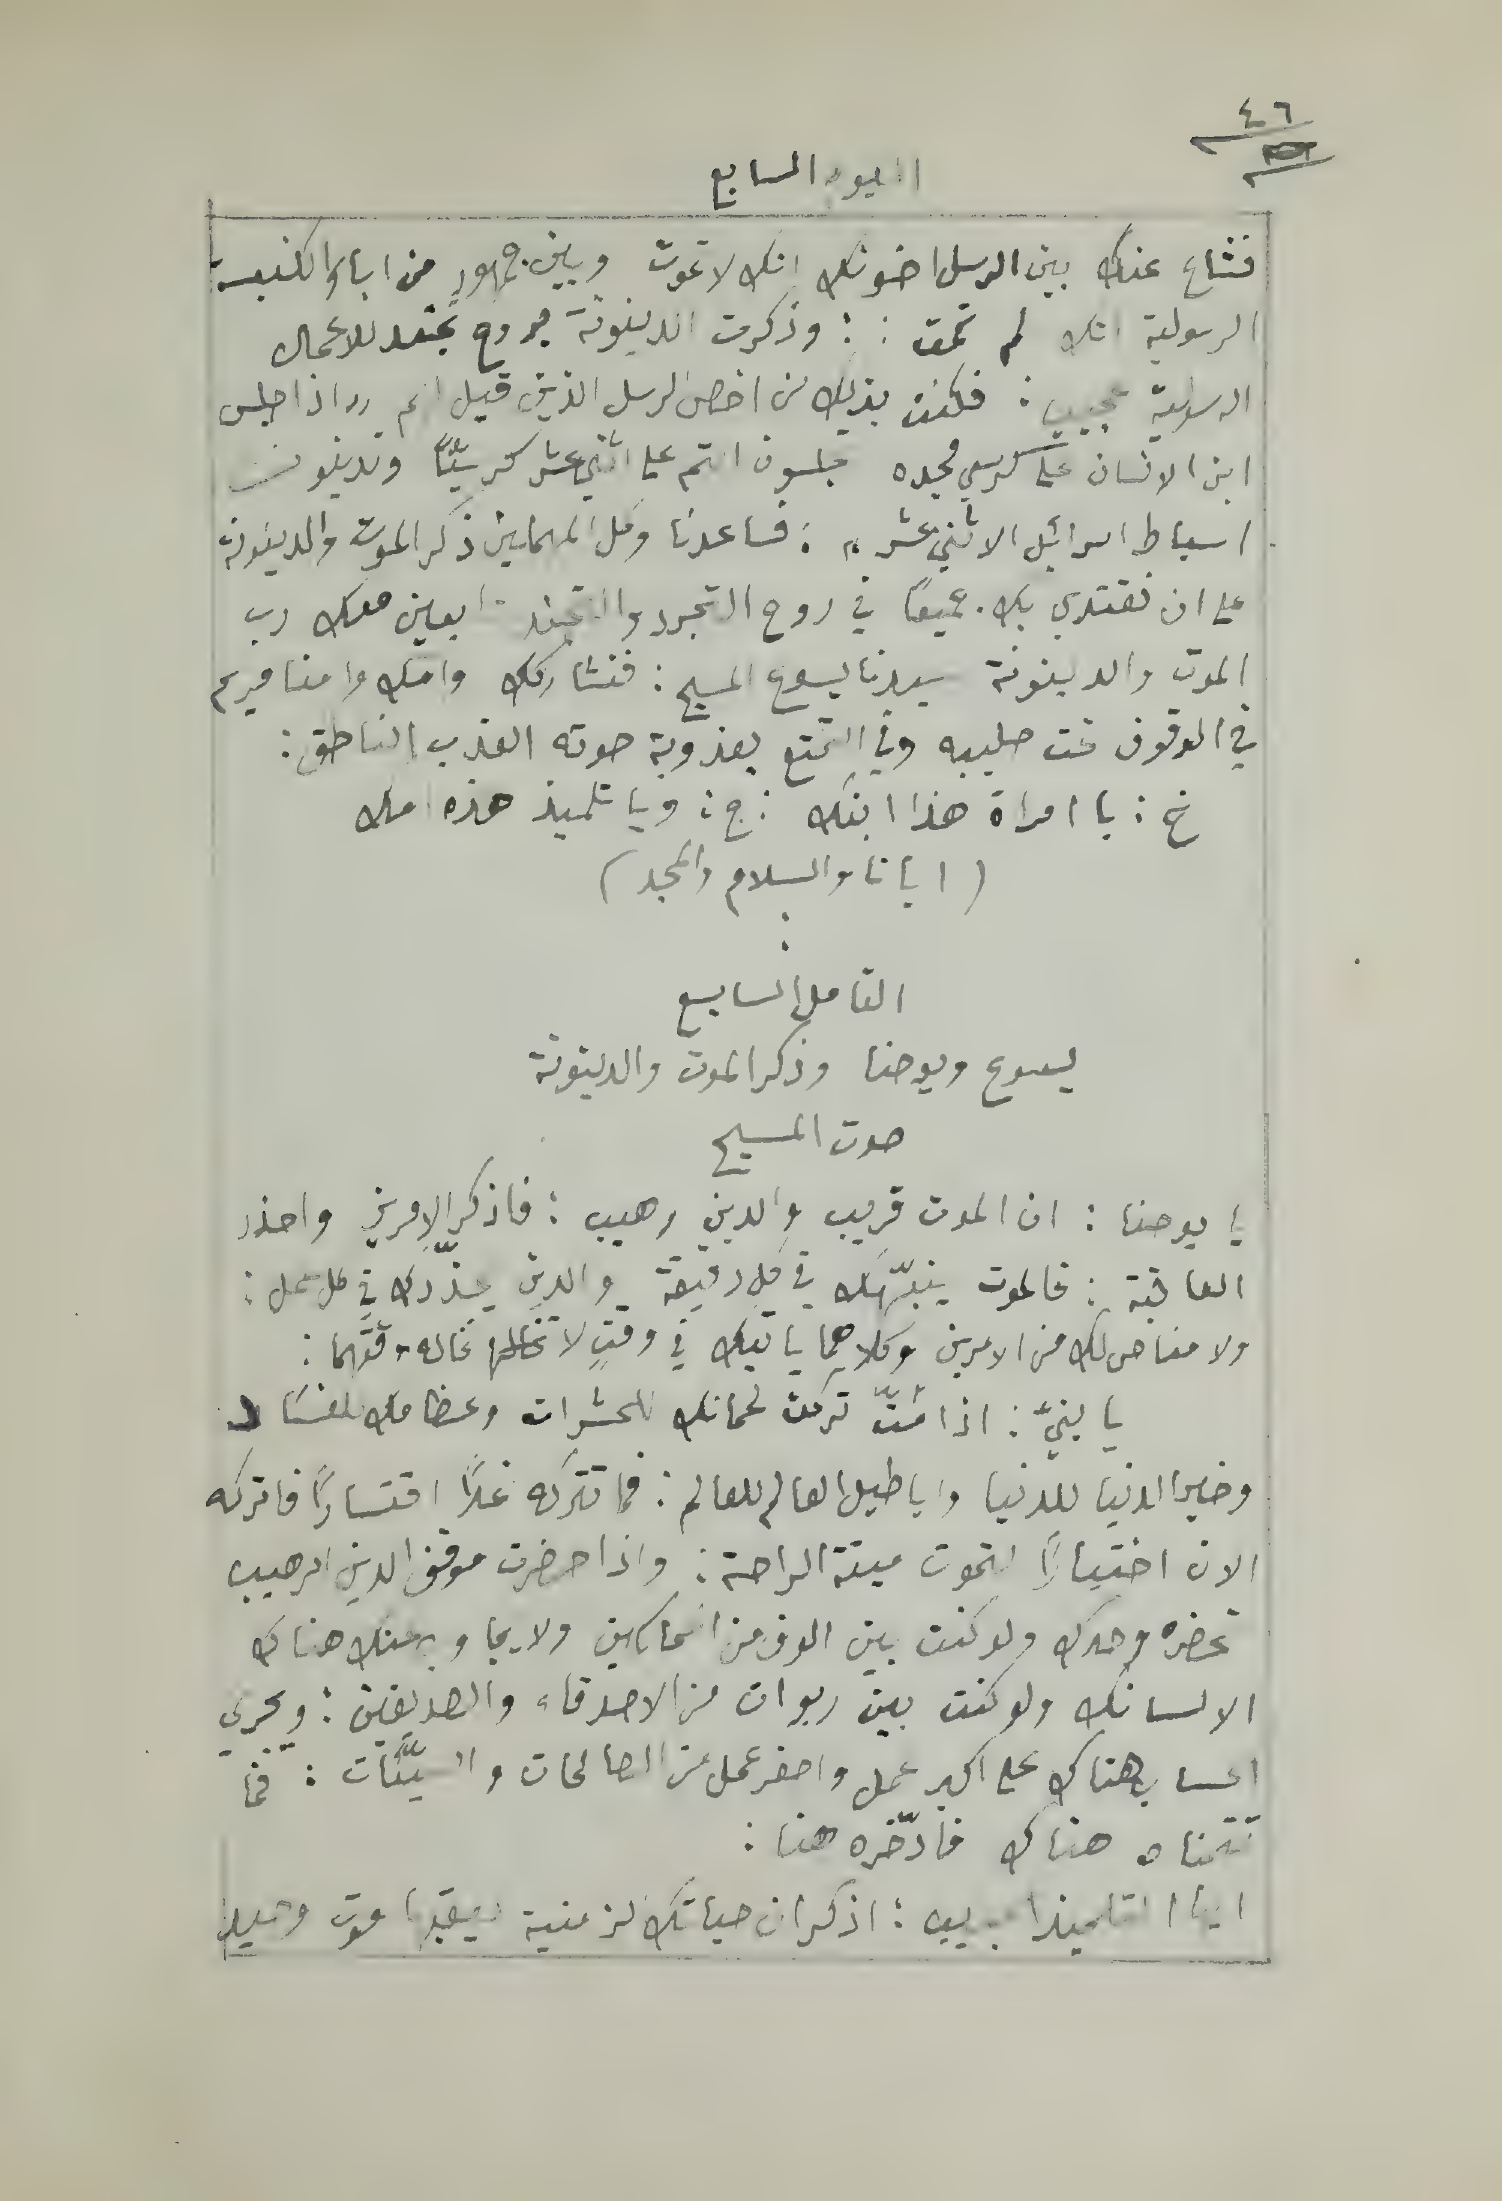 ٤٦
اليوم السابع
فشاع عنك بين الرسل اخوتك انك لا تموت وبين جمهور من اباء الكنيسة
الرسولية انك لم تمت : وذكرت الدينونة بروح تجند للاعمال
الرسولية عجيب : فكنت بذلك من اخص الرسل الذين قيل لهم "اذا جلس
ابن الانسان على كرسي مجده تجلسون انتم على اثني عشر كرسيًّا وتدينون
اسباط اسرائيل الاثني عشر" : فساعدنا وكل المهملين ذكر الموت والدينونة
على ان نقتدي بك جميعًا في روح التجرد والتجند تابعين معك رب
الموت والدينونة سيدنا يسوع المسيح : فنشاركك وامك وامنا مريم
في الوقوف تحت صليبه وفي التمتع بعذوبة صوته العذب الناطق :
خ : يا امراة هذا ابنك : ج : ويا تلميذ هذه امك
(ابانا والسلام والمجد)
التامل السابع
يسوع ويوحنا وذكر الموت والدينونة
صوت المسيح
يا يوحنا : ان الموت قريب والدين رهيب : فاذكر الامرين واحذر
العاقبة : فالموت ينبّهك في كل دقيقة والدين يحذّرك في كل عمل :
ولا مناص لك من الامرين وكلاهما ياتيك في وقتٍ لا تخالها
يا بنيّ : اذا مُتّ تركت لحمانك للحشرات وعظامك للفساد
وخير الدنيا للدنيا واباطيل العالم للعالم : فما تتركه غدًا اقتسارًا فاتركه
الان اختيارًا لتموت ميتة الراحة : واذا حضرت موقف الدين الرهيب
تحضره وحدك ولو كنت بين الوف من المحاكمين ولا يجاوب عنك هناك
الا لسانك ولو كنت بين ربوات من الاصدقاء والصديقين : ويجري
الحساب هناك على اكبر عمل واصغر عمل من الصالحات والسيّئات : فما
تتمناه هناك فادّخره هنا :
ايها التلميذ الحبيب : اذكر ان حياتك الزمنية يعقبها موت وحيد